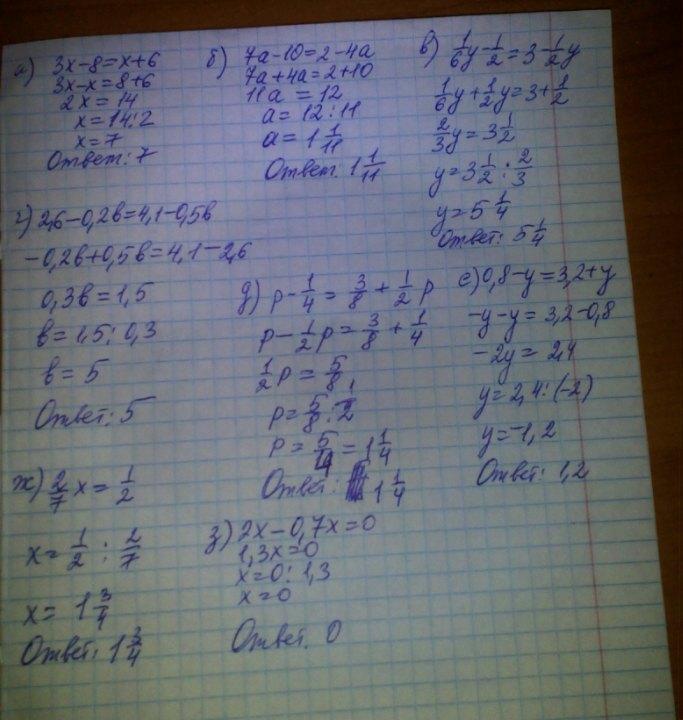 а) 3x-8=x+6
3x-x=8+6
2x=14
x=14:2
x=7
Ответ: 7
б) 7a-10=2-4a
7a+4a=2+10
11a=12
a=12:11
a=1 1/11
Ответ: 1 1/11
в) 1/6y-1/2=3-1/2y
1/6y+1/2y=3+1/2
2/3y=3 1/2
y=3 1/2:2/3
y=5 1/4
Ответ: 5 1/4
г) 2,6-0,2в=4,1-0,5в
-0,2в+0,5в=4,1-2,6
0,3в=1,5
в=1,5:0,3
в=5
Ответ: 5
д) p-1/4=3/8+1/2p
p-1/2p=3/8+1/4
1/2p=5/8
p=5/8:1/2
p=5/4=1 1/4
Ответ: 1 1/4
е) 0,8-y=3,2+y
-y-y=3,2-0,8
-2y=2,4
y=2,4:(-2)
y=-1,2
Ответ: 1,2
ж) 2/7x=1/2
x=1/2:2/7
x=1 3/4
Ответ: 1 3/4
з) 2x-0,7x=0
1,3x=0
x=0:1,3
x=0
Ответ. 0